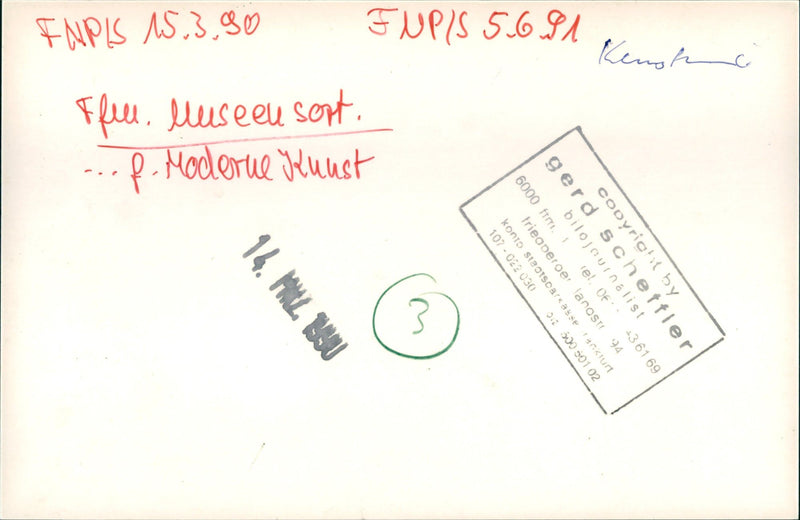 FNP/S 15.3.90
FNP/S 5.6.91
Ffm. Museen sort.
... f. Moderne Kunst
14. MRZ. 1990
3
copyright by
gerd scheffler
bildjournalist
6000 ffm. 1 tel. 43 61 69
friedberger landstr. 94
konto stadtsparkasse frankfurt
107-022 030 blz 500 501 02